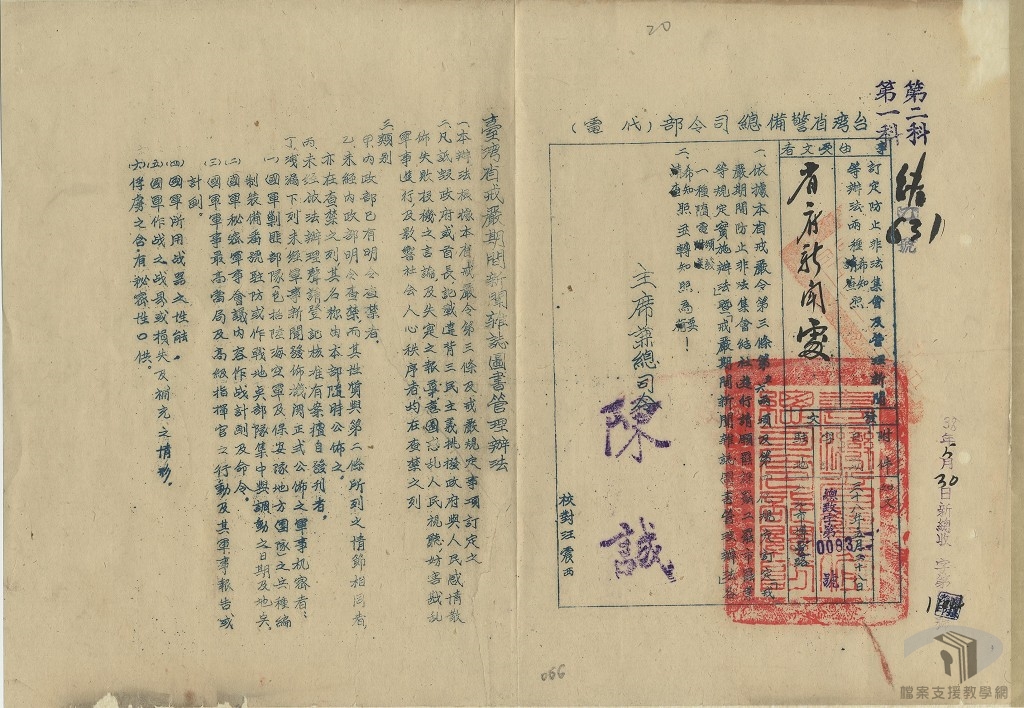 20
第二科
第一科
結
631
號
台灣省警備總司令部(代電)
事由
受文者
訂定防止非法集會及管理新聞
等辦法兩種希知照
省府新聞處
附件如文
發文
三十八年五月廿八日
總致字第0093號
一、依據本省戒嚴令第三條第
嚴期間防止非法集會結社遊行請願罷課罷工罷市罷業
等規定實施辦法」暨「戒嚴期間新聞雜誌圖書管理辦法」各
一種隨電頒發
二、希知照並轉知照為要!
主席兼總司令
陳誠
校對汪震西
38年5月30日新總收 字第
臺灣省戒嚴期間新聞雜誌圖書管理辦法
一、本辦法根據本省戒嚴令第三條及戒嚴規定事項訂定之
二、凡詆毀政府或首長、記載違背三民主義挑撥政府與人民感情散
佈失敗投機之言論及失實之報導意圖惑乱人民視聽、妨害戡乱
軍事進行及影響社会人心秩序者均在查禁之列
三、類別
甲、內政部已有明令查禁者。
乙、未經內政部明令查禁而其性質與第二條所列之情節相同者
亦在查禁之列其名称由本部隨時公佈之。
丙、未經依法辦理聲請登記核准有案擅自發刊者。
丁、洩漏下列未經軍事新聞發佈機関正式公佈之軍事机密者:
(一)國軍剿匪部隊(包括陸海空軍及保安隊地方團隊)之兵種編
制裝備番號駐防或作戰地奌部隊集中與調動之日期及地奌。
(二)國軍秘密軍事會議內容作战計劃及命令。
(三)國軍軍事最高當局及高級指揮官之行動及其軍事報告或
計劃。
(四)國軍所用战器之性能。
(五)國軍作战之战畧或損失及補充之情形。
(六)俘虜之含有秘密性口供。
066
檔案支援教學網